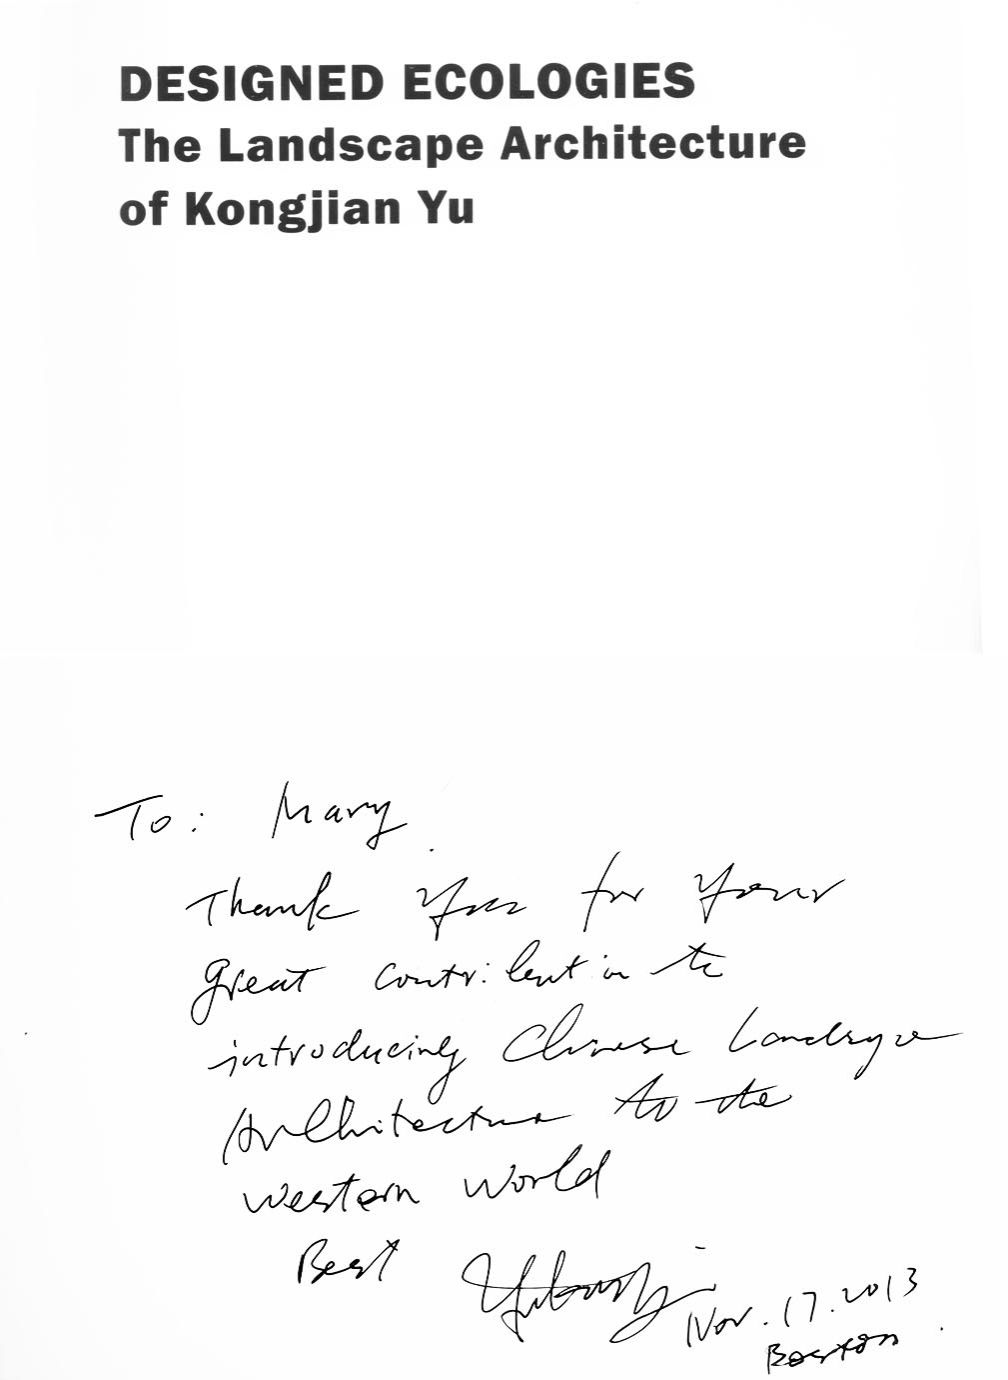 DESIGNED ECOLOGIES
The Landscape Architecture
of Kongjian Yu
To: Mary
Thank you for your
great contribution to
introducing Chinese Landscape
Architecture to the
western world
Best
Nov. 17. 2013
Boston